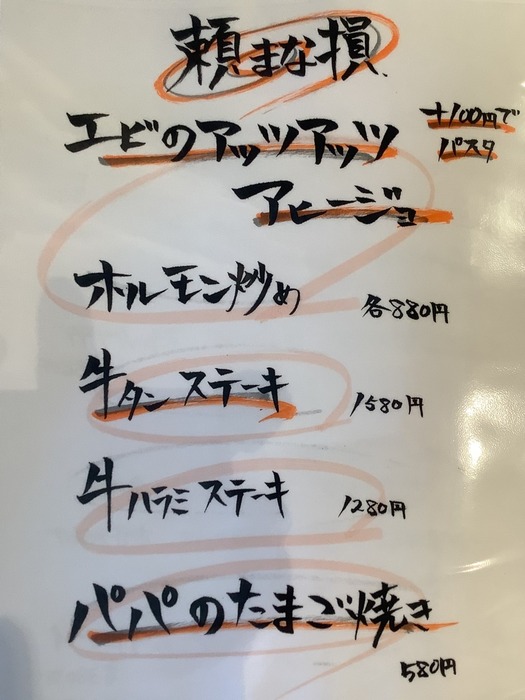 頼まな損
エビのアッツアッツ
+100円で
パスタ
アヒージョ
ホルモン炒め
各880円
牛タンステーキ
1580円
牛ハラミステーキ
1280円
パパのたまご焼き
580円